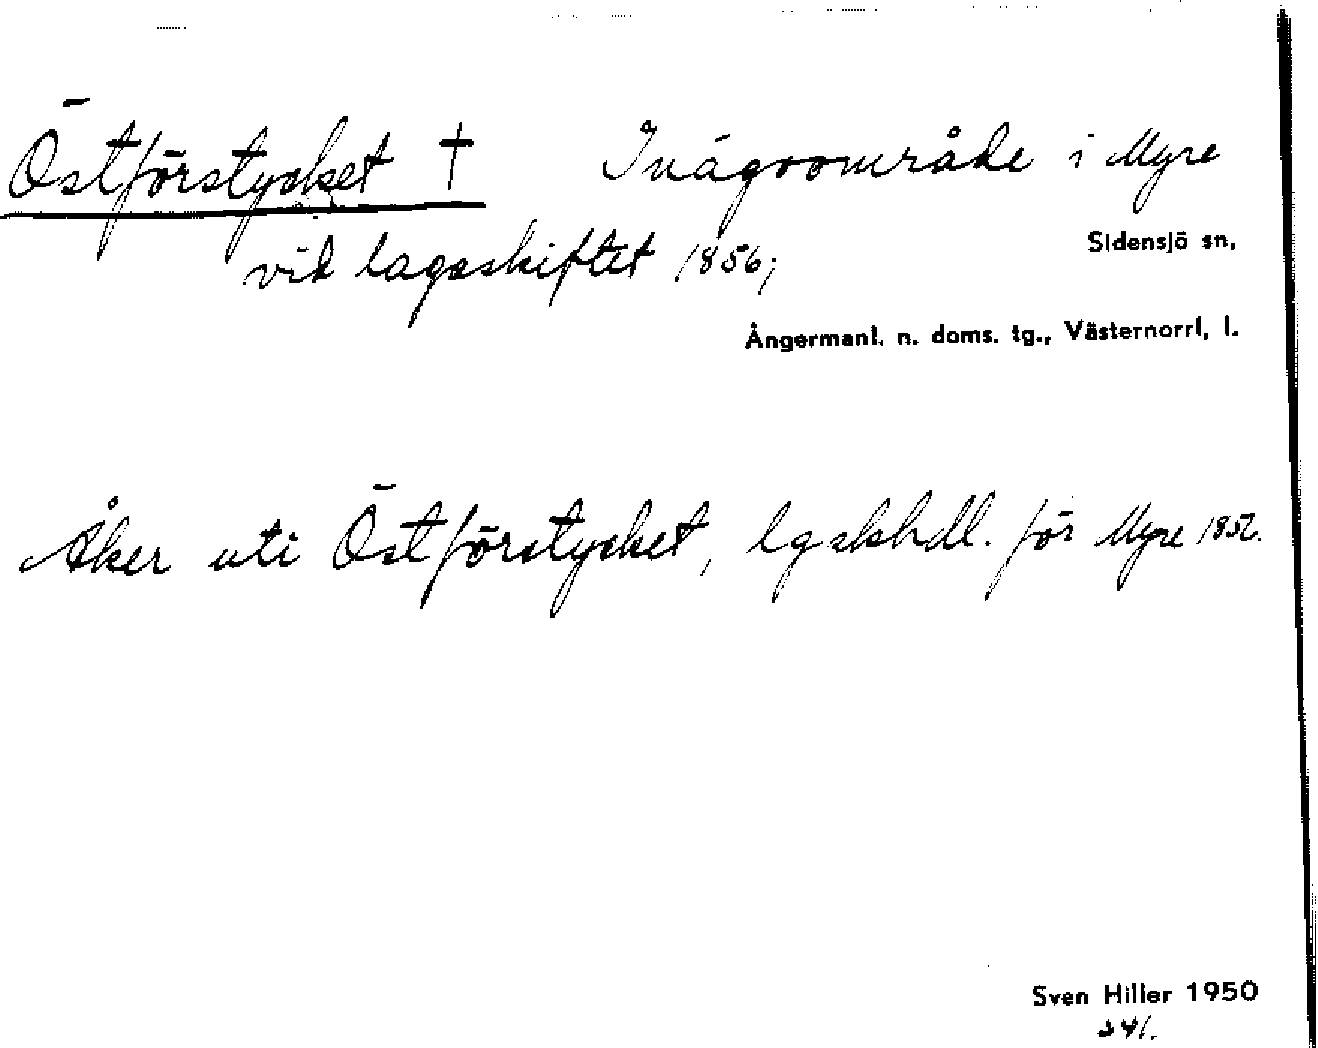 Östförstycket † Inägoområde i Myre
Sidensjö sn,
vid lagaskiftet 1856;
Ångermanl. n. doms. tg., Västernorrl, l.
Åker uti Östförstycket, lgskhdl. för Myre
Sven Hiller 1950